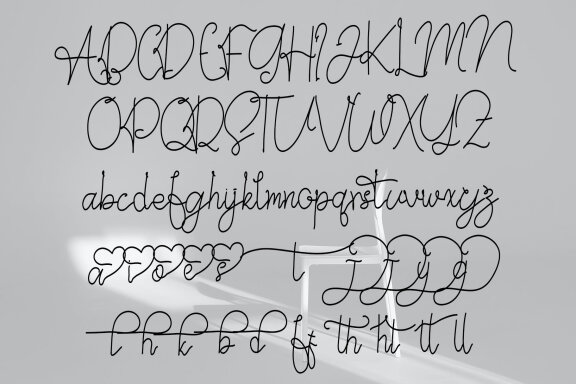 ABCDEFGHIJKLMN
OPQRSTUVWXYZ
abcdefghijklmnopqrstuvwxyz
a r o e s t j y g
l h k b d ft th ht tt ll